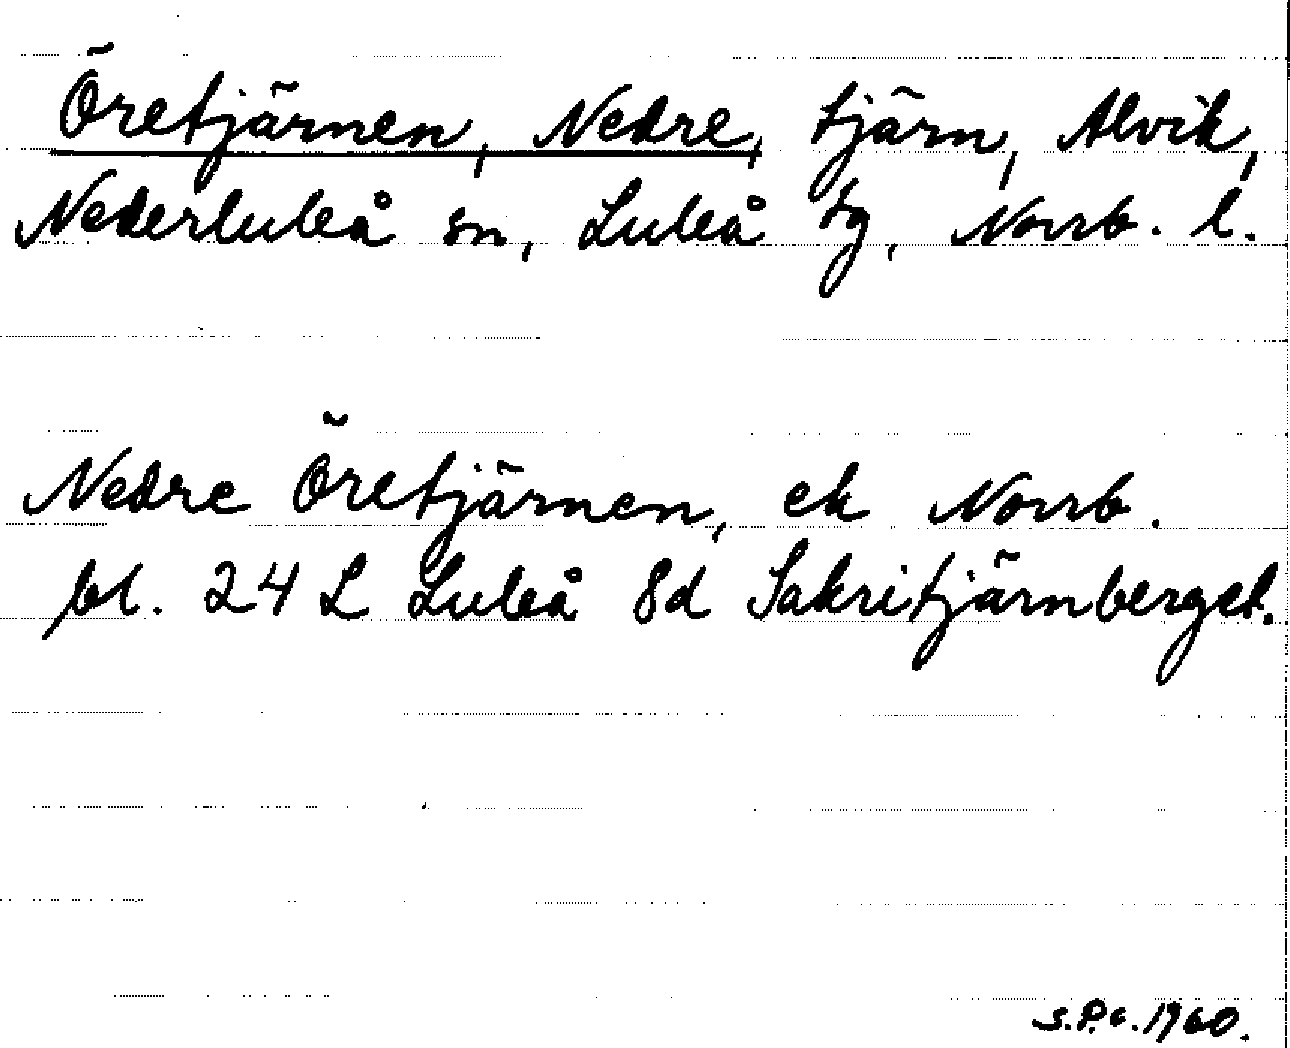 Öretjärnen, Nedre, tjärn, Alvik,
Nederluleå sn, Luleå tg, Norrb. l.
Nedre Öretjärnen, ek Norrb.
bl. 24 L Luleå 8d Sakritjärnberget.
S.P.c. 1960.